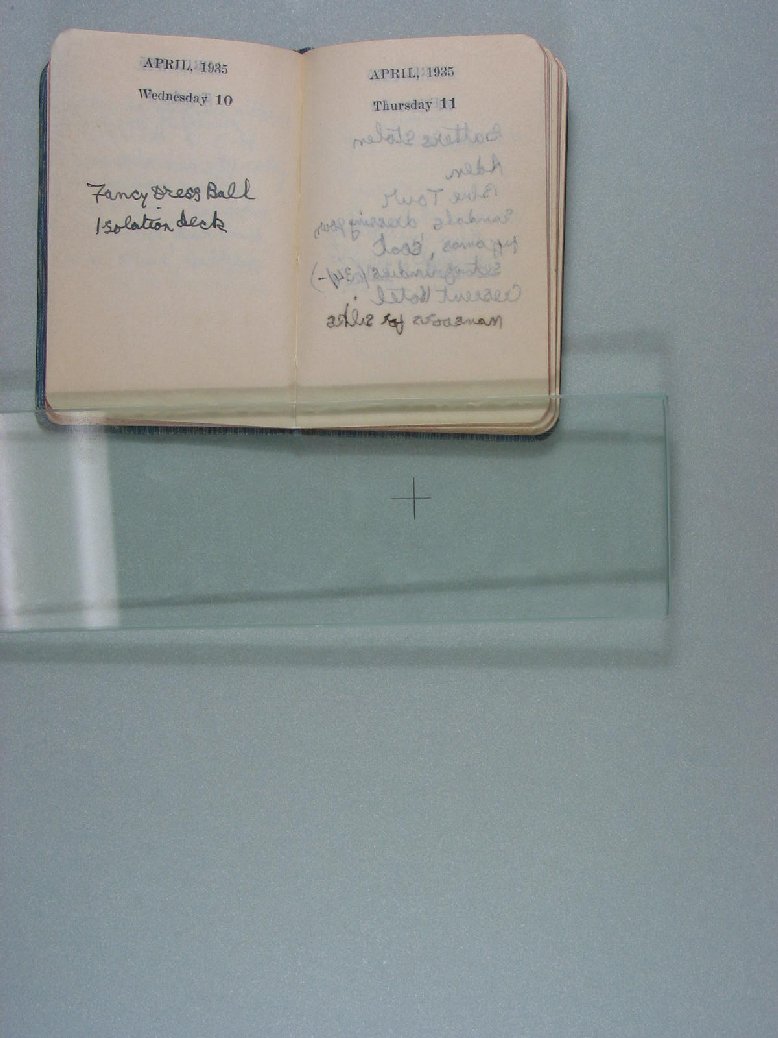 APRIL, 1935
Wednesday 10
Fancy Dress Ball
Isolation deck
APRIL, 1935
Thursday 11
stolen
Aden
Sandals dressing gown
coat
Crescent Hotel
for silks